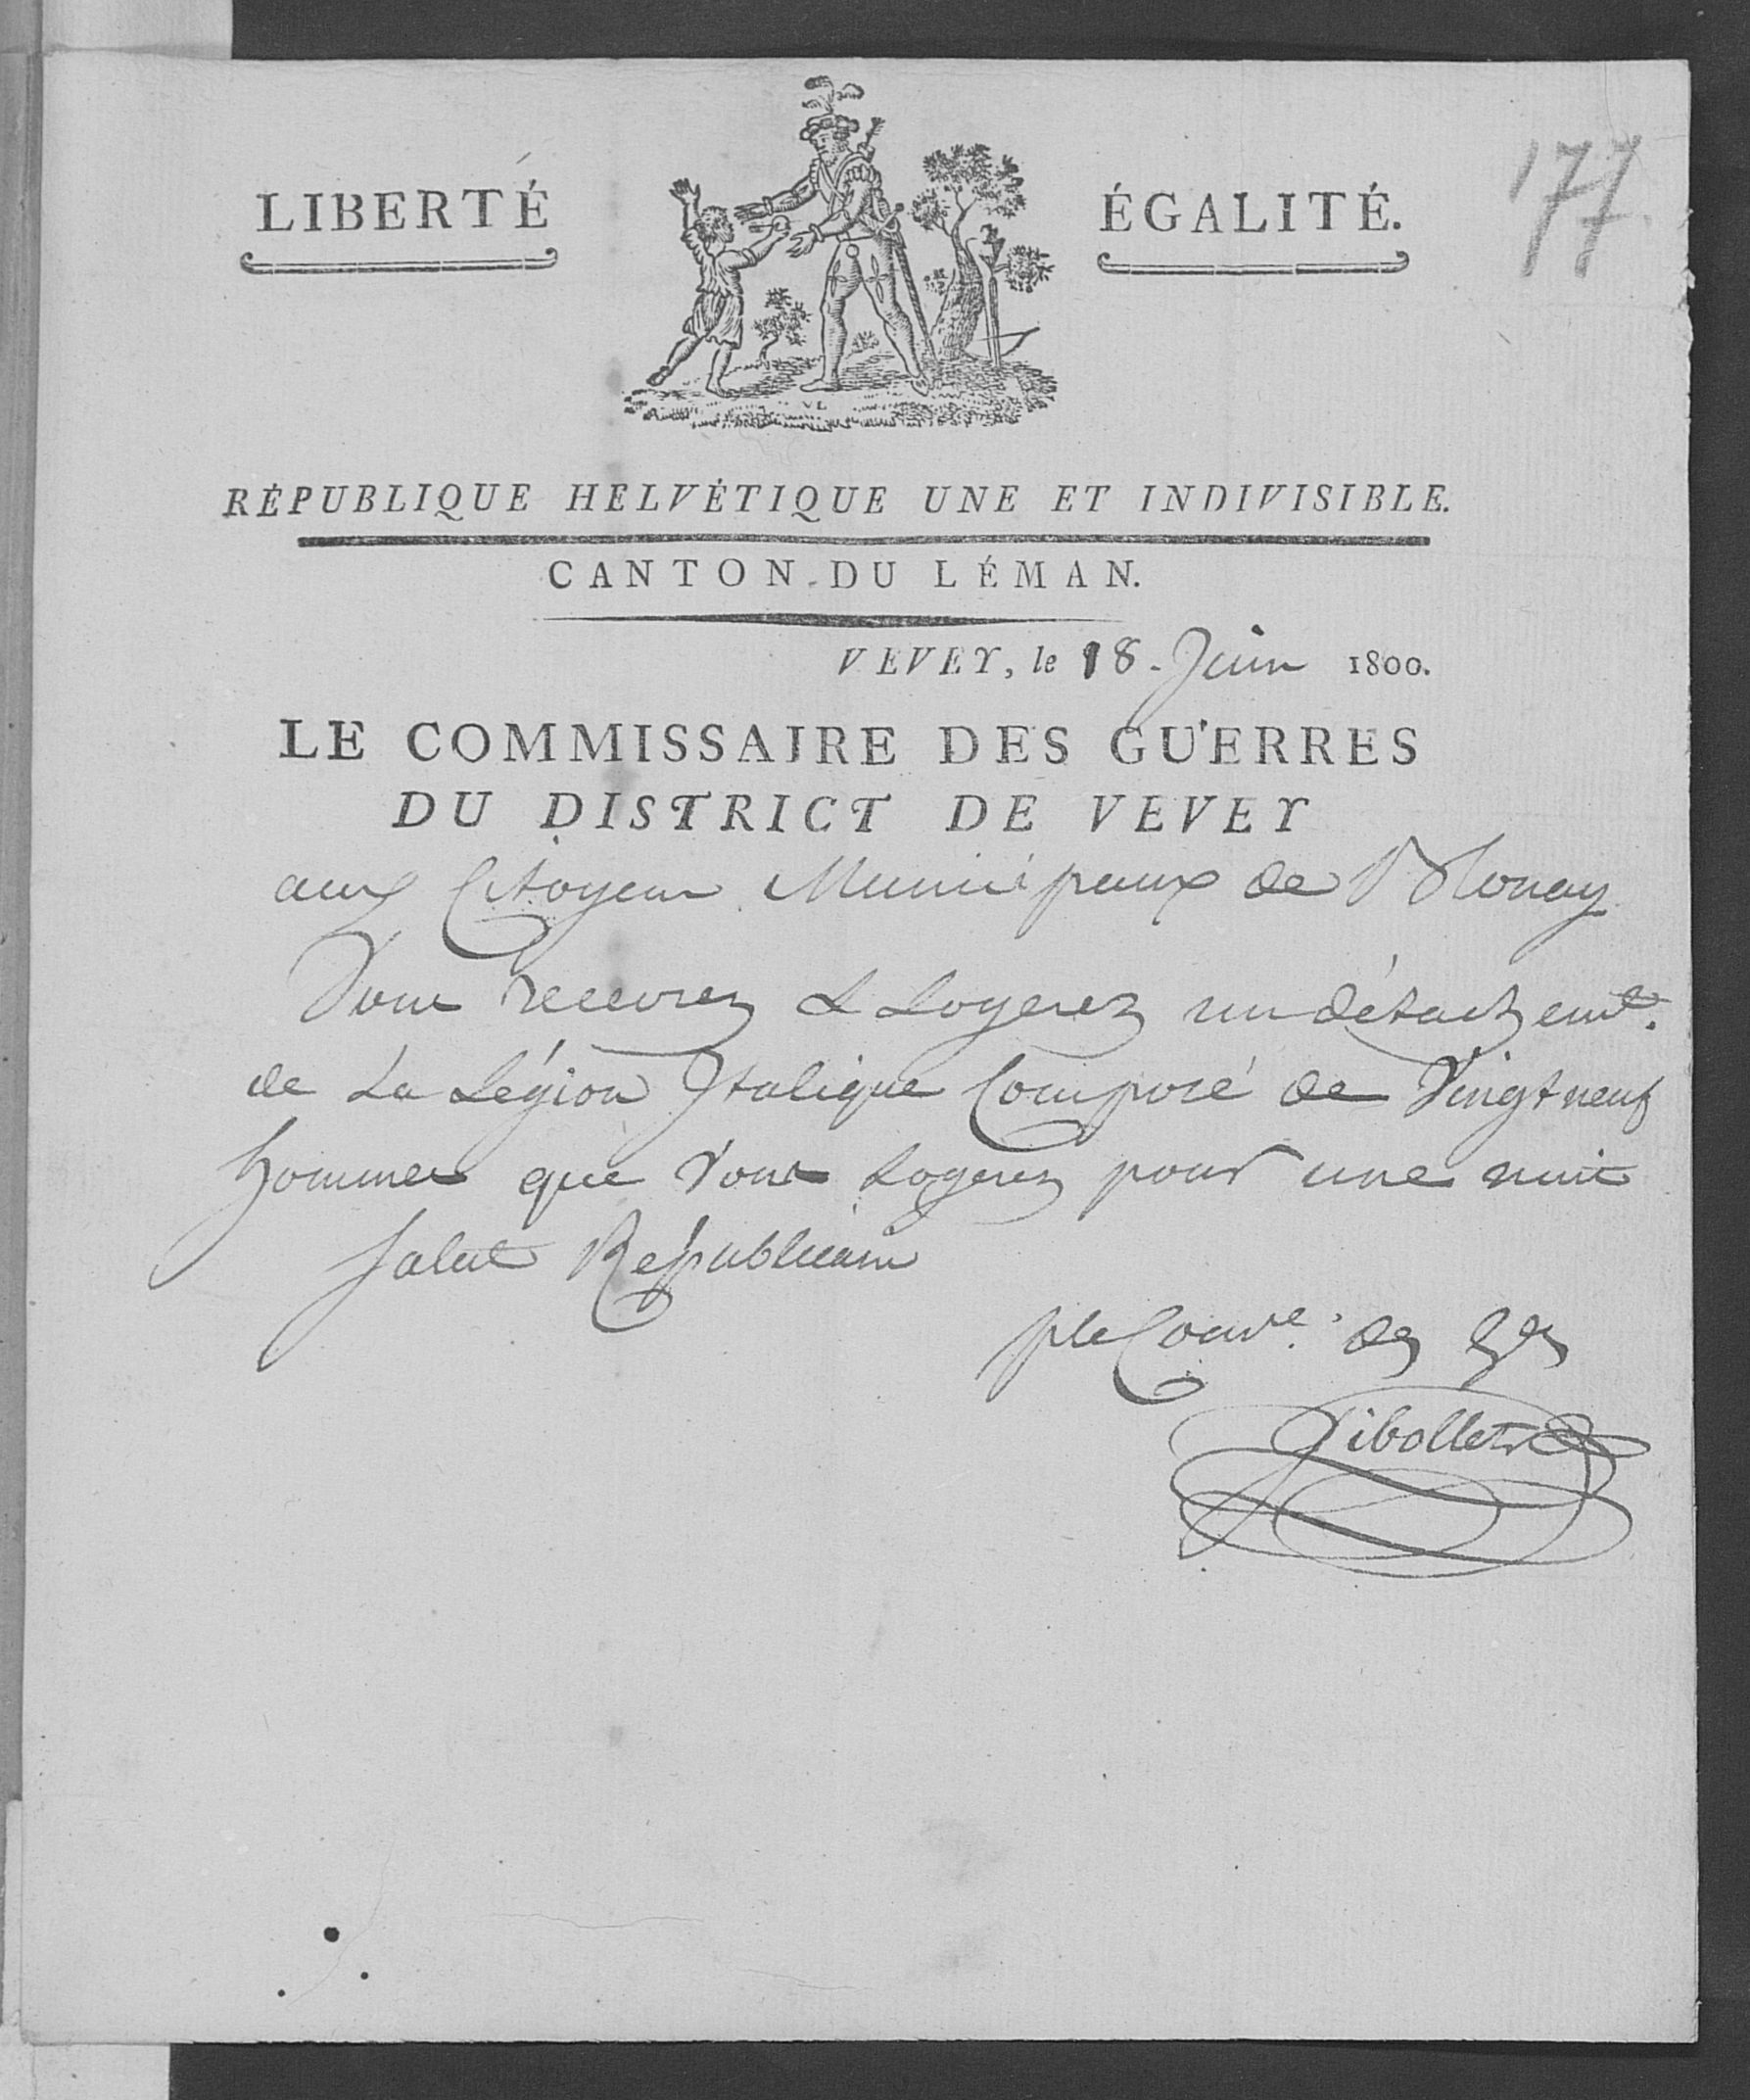 177.
LIBERTÉ ÉGALITÉ.
VL
RÉPUBLIQUE HELVÉTIQUE UNE ET INDIVISIBLE.
CANTON DU LÉMAN.
VEVEY, le 18. Juin 1800.
LE COMMISSAIRE DES GUERRES
DU DISTRICT DE VEVEY
aux Citoyens Municipaux de Blonay
Vous recevrez & Logerez un détachemt.
de La Légion Italique Composé de Vingt neuf
hommes que Vous Logerez pour une nuit
Salut Républicain
ple Comre. des Gs
Gibollet